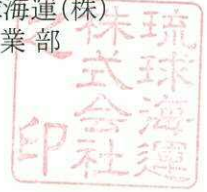 海運(株)
業部
琉球海運
株式会社
之印